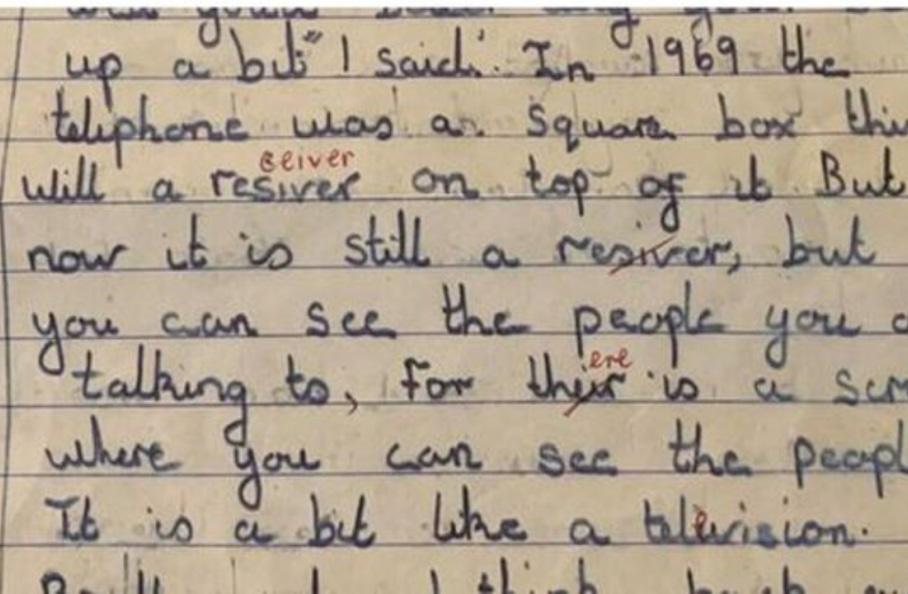 up a bit" I said. In 1969 the
teliphone was a square box
ceiver
will a resiver on top of it But
now it is still a resiver, but
you can see the people you
ere
talking to, For their is a
where you can see the
It is a bit like a television.
I think